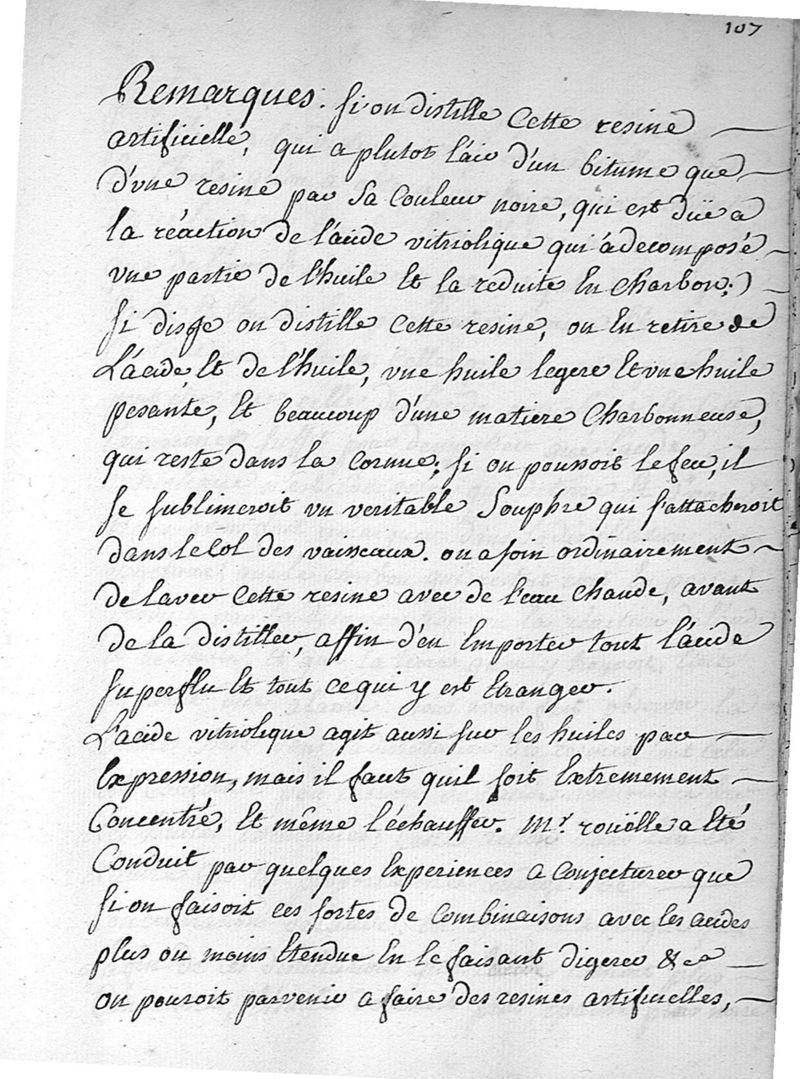 107
Remarques. Si on distille Cette resine
artificielle, qui a plutot l'air d'un bitume que
d'vne resine par Sa Couleur noire, qui est düe a
la réaction de l'acide vitriolique qui à decomposé
vne partie de l'huile Et la reduite En Charbon;)
Si disje on distille Cette resine, on En retire de
L'acide Et de l'huile, vne huile legere Et vne huile
pesante, Et beaucoup d'une matiere Charbonneuse,
qui reste dans la Cornue; Si on poussoit le feu, il
se sublimeroit vn veritable Souphre qui s'attacheroit
dans le Col des vaisseaux. on a soin ordinairement
de laver Cette resine avec de l'eau Chaude, avant
de la distiller, affin d'en Emporter tout l'acide
superflu Et tout ce qui y est Etranger.
L'acide vitriolique agit aussi sur les huiles par
Expression, mais il faut quil soit Extremement
Concentré, Et même l'échauffer. Mr. rouëlle a Eté
Conduit par quelques Experiences a Conjecturer que
si on faisoit ces sortes de Combinaisons avec les acides
plus ou moins Etendue En le faisant digerer &ca
on pouroit parvenir a faire des resines artificielles,